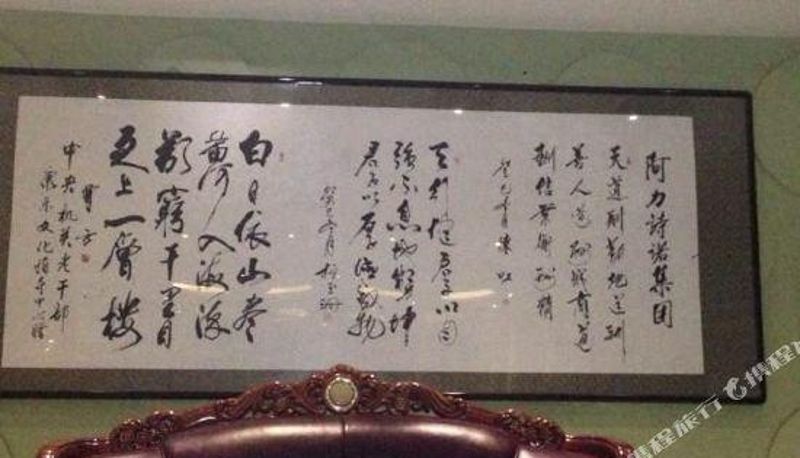 阿力詩諾集团
天道酬勤地道酬
善人道酬誠商道
酬信業酬精
癸巳
天行健君子以自
强不息地势坤
君子以厚德载物
癸巳冬月
白日依山尽
黄河入海流
欲窮千里目
更上一層楼
中央机关老干部
康乐文化指导中心
携程旅行